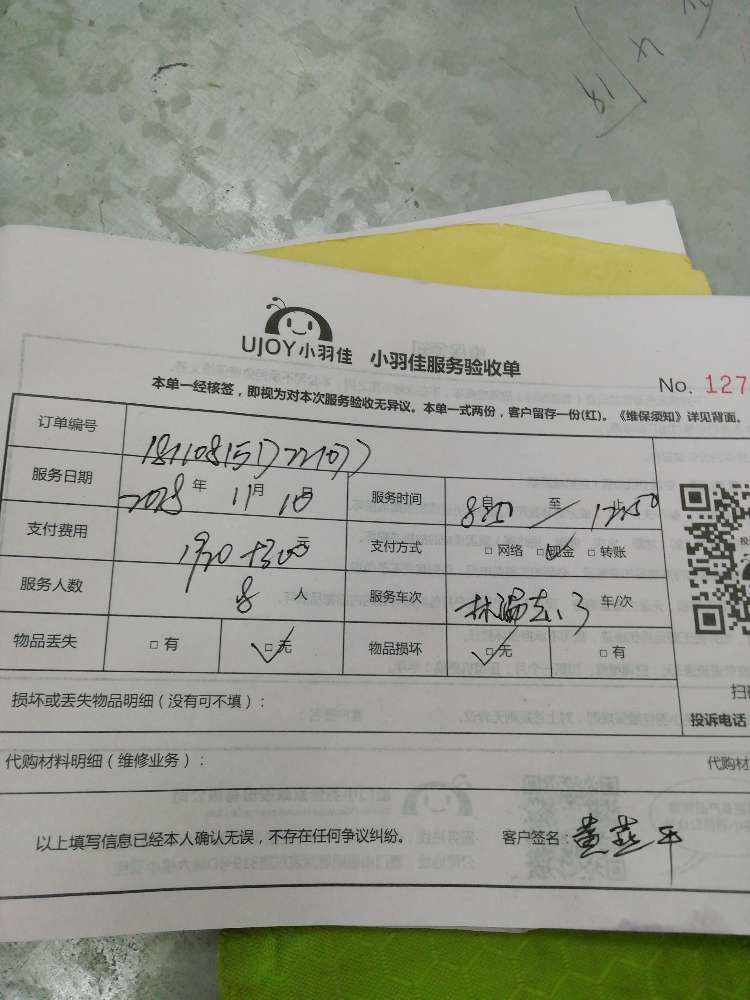 UJOY小羽佳 小羽佳服务验收单
No. 127
本单一经核签，即视为对本次服务验收无异议。本单一式两份，客户留存一份(红)。《维保须知》详见背面。
订单编号
服务日期 2018年 11月 10日 服务时间 自 8:50 至 12:50 止
支付费用 1920+300元 支付方式 □ 网络 □ 现金 □ 转账
服务人数 8 人 服务车次 3 车/次
物品丢失 □ 有 □ 无 物品损坏 □ 无 □ 有
损坏或丢失物品明细（没有可不填）：
扫
投诉电话
代购材料明细（维修业务）：
代购材
以上填写信息已经本人确认无误，不存在任何争议纠纷。 客户签名：黄燕平